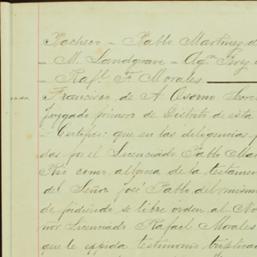 Pacheco - Pablo Martinez d
- M. Sandgran - Ag. Froy
- Raf.l F. Morales
Francisco de A. Osorno Secre
juzgado primero de Distrito de esta
- Certifico: que en las diligencias p
das por el Licenciado Pablo Mar
como albacea de la testament
del Señor José Pablo del mism
de pidiendo se libre orden al No
rio Licenciado Rafael Morales
que le expida testimonio triplica